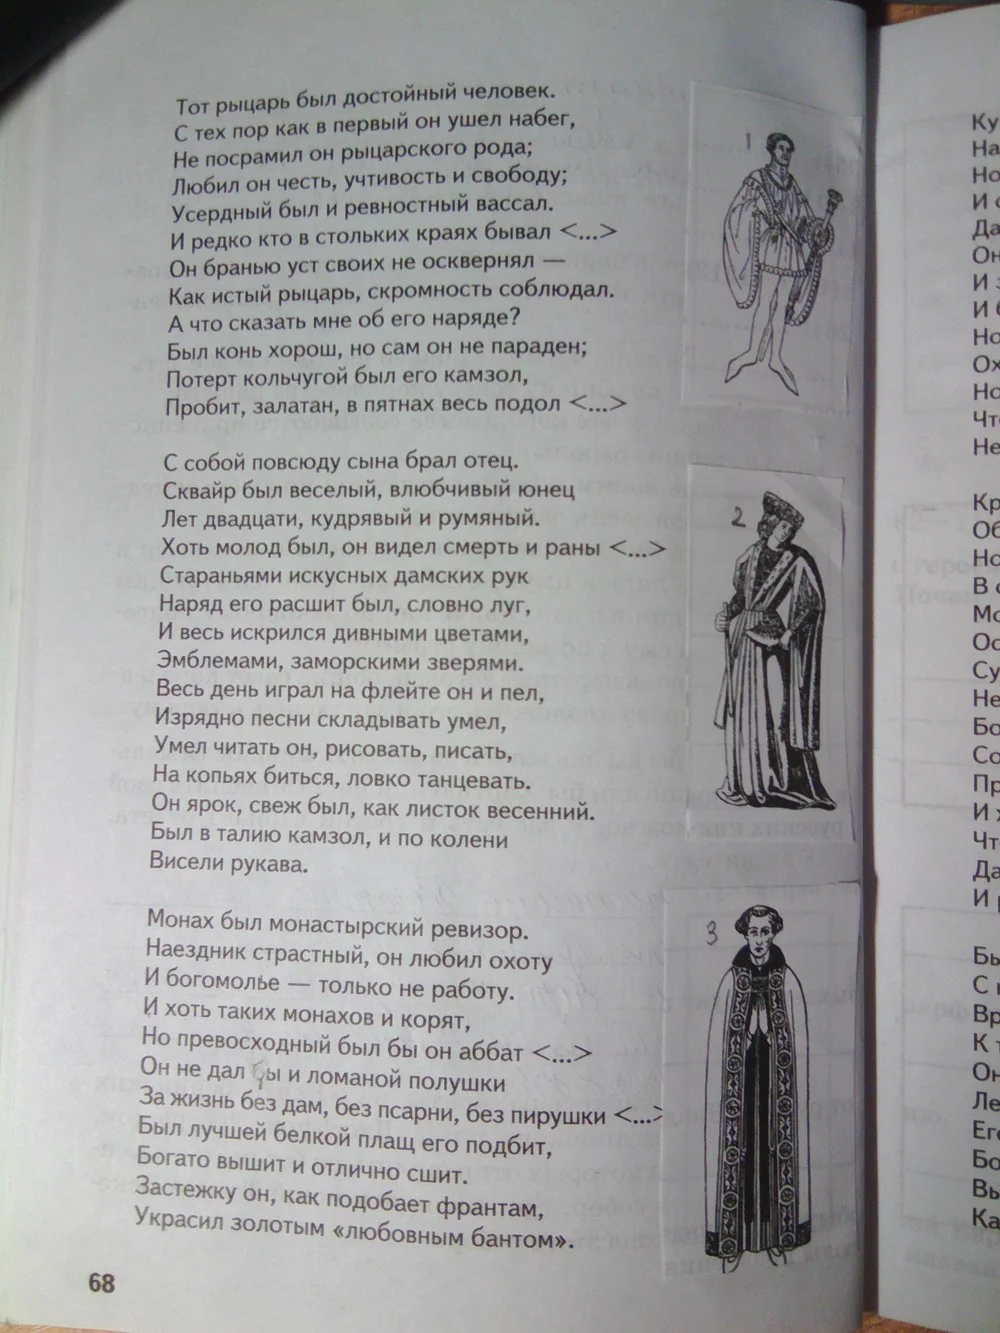 Тот рыцарь был достойный человек.
С тех пор как в первый он ушел набег,
Не посрамил он рыцарского рода;
Любил он честь, учтивость и свободу;
Усердный был и ревностный вассал.
И редко кто в стольких краях бывал <...>
Он бранью уст своих не осквернял —
Как истый рыцарь, скромность соблюдал.
А что сказать мне об его наряде?
Был конь хорош, но сам он не параден;
Потерт кольчугой был его камзол,
Пробит, залатан, в пятнах весь подол <...>
1
С собой повсюду сына брал отец.
Сквайр был веселый, влюбчивый юнец
Лет двадцати, кудрявый и румяный.
Хоть молод был, он видел смерть и раны <...>
Стараньями искусных дамских рук
Наряд его расшит был, словно луг,
И весь искрился дивными цветами,
Эмблемами, заморскими зверями.
Весь день играл на флейте он и пел,
Изрядно песни складывать умел,
Умел читать он, рисовать, писать,
На копьях биться, ловко танцевать.
Он ярок, свеж был, как листок весенний.
Был в талию камзол, и по колени
Висели рукава.
2
Монах был монастырский ревизор.
Наездник страстный, он любил охоту
И богомолье — только не работу.
И хоть таких монахов и корят,
Но превосходный был бы он аббат <...>
Он не дал бы и ломаной полушки
За жизнь без дам, без псарни, без пирушки <...>
Был лучшей белкой плащ его подбит,
Богато вышит и отлично сшит.
Застежку он, как подобает франтам,
Украсил золотым «любовным бантом».
3
68
Ку
На
Но
И
Да
Он
И
И
Но
Ох
Но
Что
Не
Кр
Об
Но
В
Мо
Ос
Су
Не
Бо
Со
Пр
И
Чт
Да
И
Бы
С
Вр
К
Он
Ле
Ег
Бо
Вы
Ка